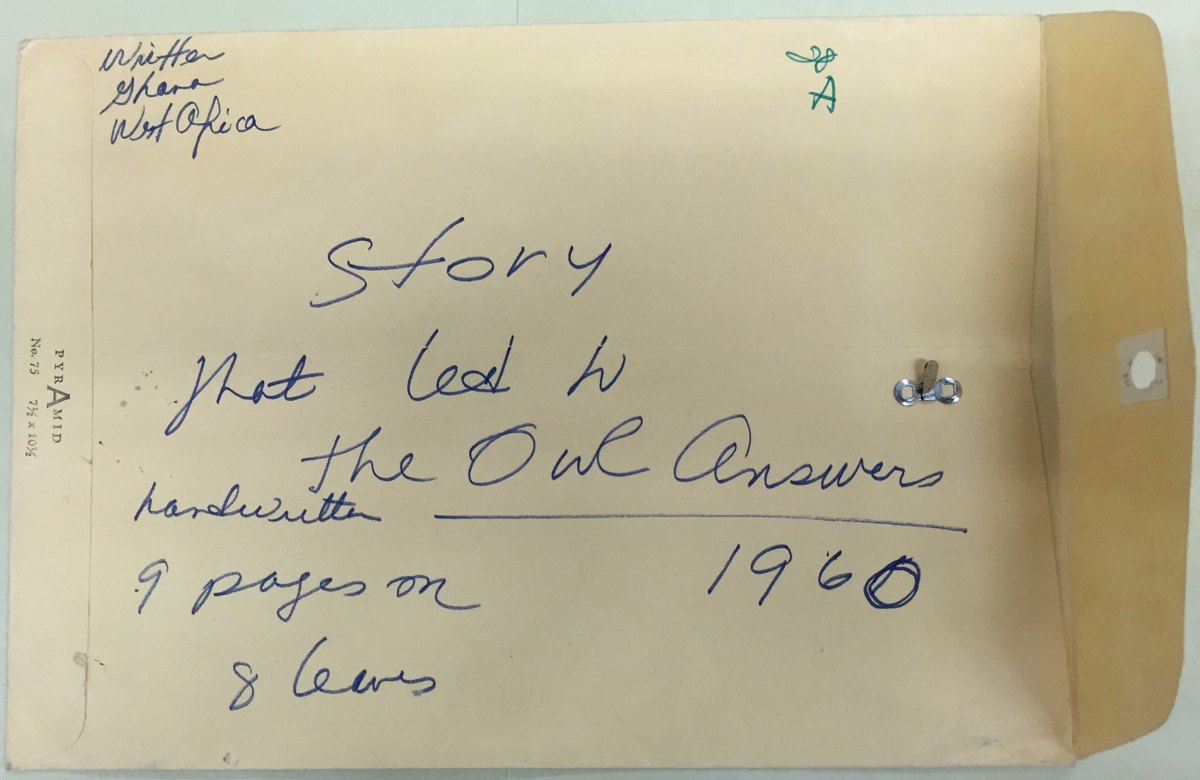 Written
Ghana
West Africa
28
A
Story
that led to
the Owl Answers
handwritten
1960
9 pages on
8 leaves
PYRAMID
No. 75 7½ x 10½